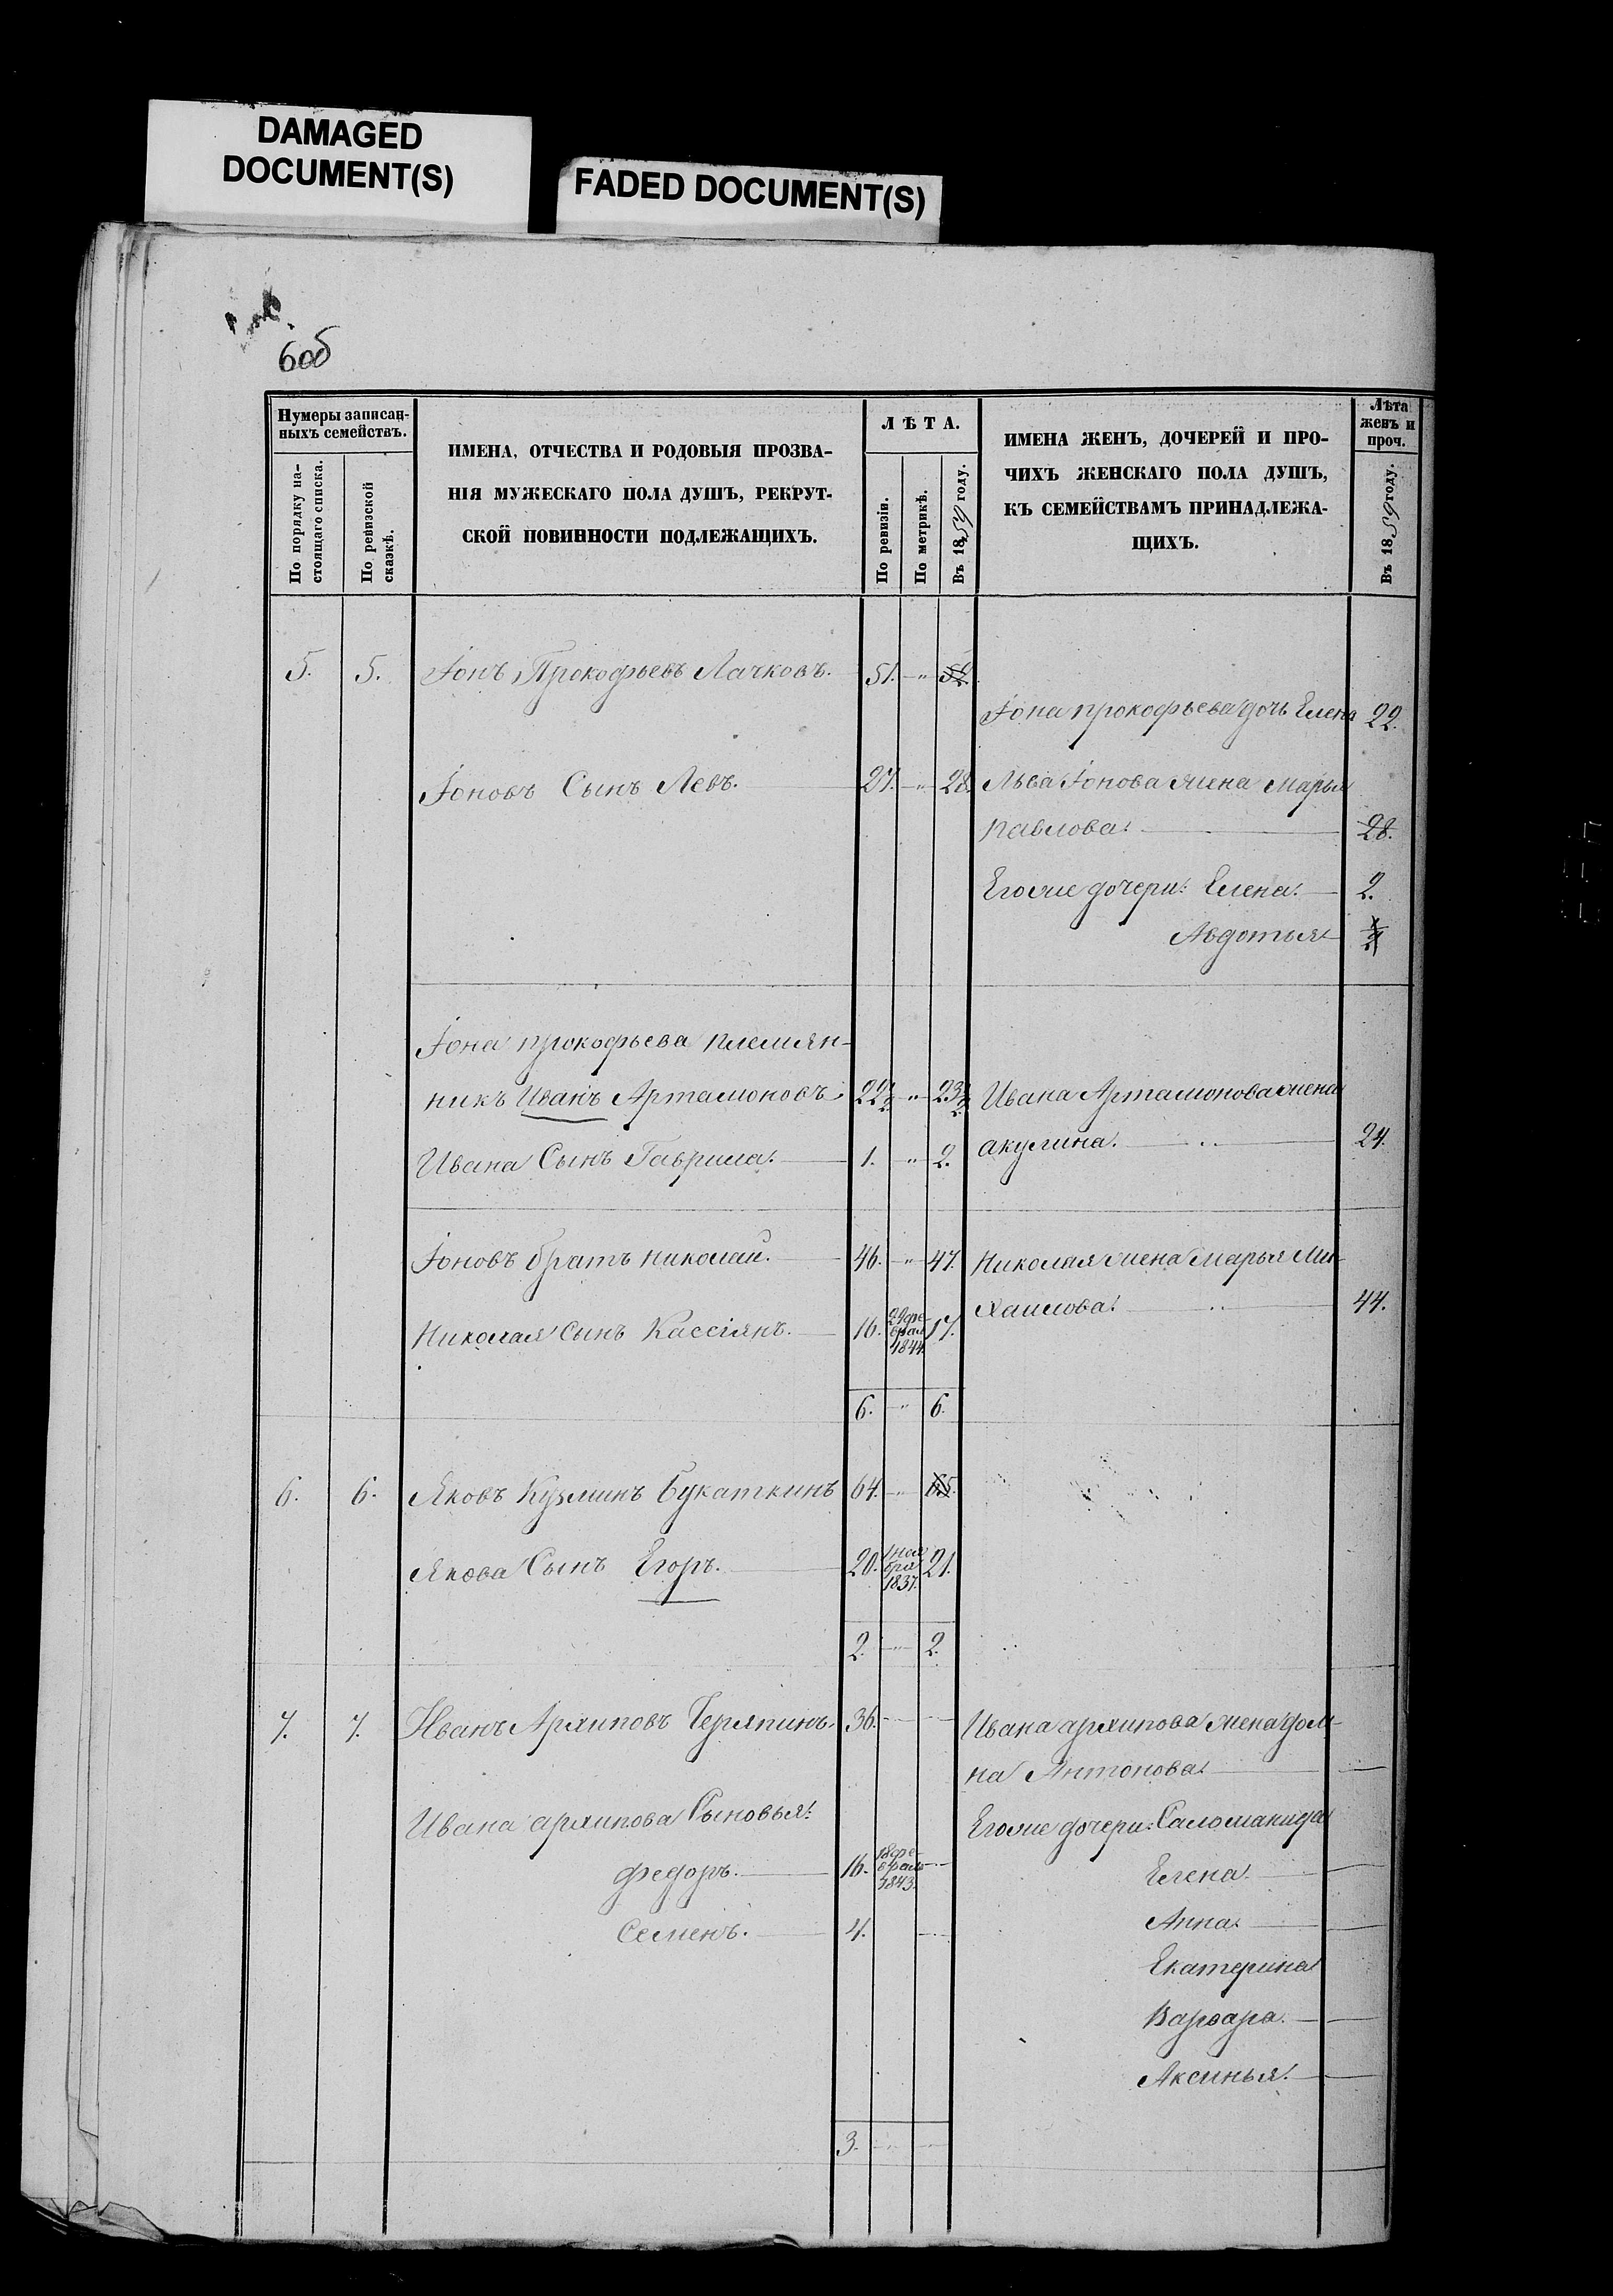 DAMAGED
DOCUMENT(S)
FADED DOCUMENT(S)
6об
Нумеры записан-
ныхъ семействъ.
По порядку на-
стоящаго списка.
По ревизской
сказкѣ.
ИМЕНА, ОТЧЕСТВА И РОДОВЫЯ ПРОЗВА-
НІЯ МУЖЕСКАГО ПОЛА ДУШЪ, РЕКРУТ-
СКОЙ ПОВИННОСТИ ПОДЛЕЖАЩИХЪ.
ЛѢТА.
По ревизіи.
По метрикѣ.
Въ 1859 году.
ИМЕНА ЖЕНЪ, ДОЧЕРЕЙ И ПРО-
ЧИХЪ ЖЕНСКАГО ПОЛА ДУШЪ,
КЪ СЕМЕЙСТВАМЪ ПРИНАДЛЕЖА-
ЩИХЪ.
Лѣта
женъ и
проч.
Въ 1859 году.
5. 5. Іонъ Прокофьевъ Лачковъ. 51. 52.
Іона прокофьева дочь Елена 22.
Іоновъ Сынъ Левъ. 27. 28. Льва Іонова жена Марья
Павлова. 28.
Егоже дочери: Елена. 2.
Авдотья
Іона прокофьева племян-
никъ Иванъ Артамоновъ 22½ 23½ Ивана Артамонова жена
акулина. 24.
Ивана Сынъ Гаврила. 1. 2.
Іоновъ братъ николай. 46. 47. Николая жена Марья Ми-
хаилова. 44.
Николая Сынъ Кассіянъ. 16. 29 фе-
враля
1844 17.
6. 6.
6. 6. Яковъ Кузминъ Букаткинъ 64. 65.
Якова Сынъ Егоръ. 20. 1 ноя
бря
1837. 21.
2. 2.
7. 7. Иванъ Архиповъ Черяпинъ. 36. Ивана архипова жена дом-
на Антонова.
Ивана архипова Сыновья: Егоже дочери: Саломанида
федоръ. 16. 18 фе-
враля
1843. Елена.
Семенъ. 4. Анна.
Екатерина
Варвара.
Аксинья.
3.